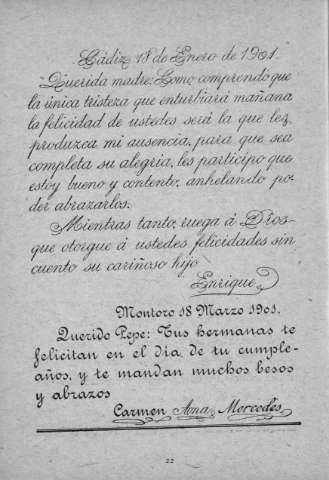 Cádiz 18 de Enero de 1901.
Querida madre: Como comprendo que
la única tristeza que enturbiará mañana
la felicidad de ustedes será la que les
produzca mi ausencia, para que sea
completa su alegria, les participo que
estoy bueno y contento, anhelando po-
der abrazarlos.
Mientras tanto, ruega á Dios
que otorgue á ustedes felicidades sin
cuento su cariñoso hijo
Enrique
Montoro 18 Marzo 1901.
Querido Pepe: Tus hermanas te
felicitan en el día de tu cumple-
años, y te mandan muchos besos
y abrazos
Carmen Ana Mercedes
22